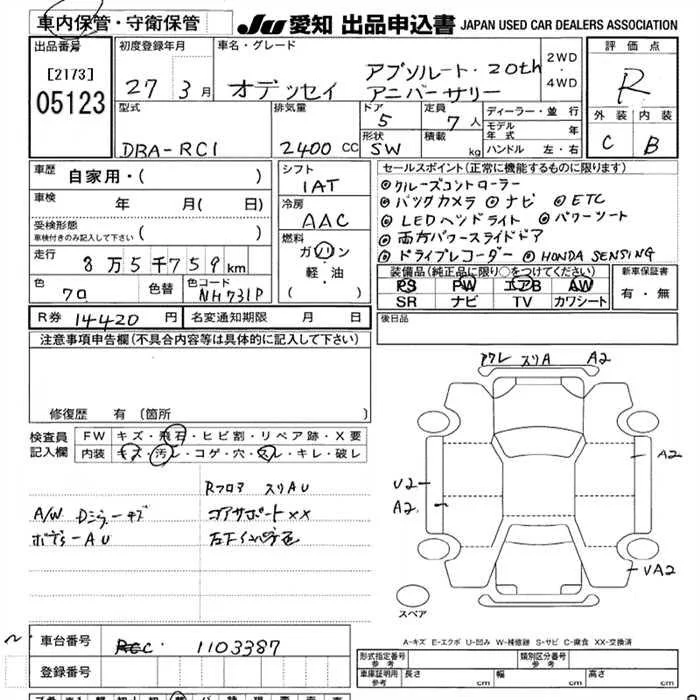 車内保管・守衛保管
JU 愛知 出品申込書 JAPAN USED CAR DEALERS ASSOCIATION
出品番号
[2173]
05123
初度登録年月
27 3月
車名・グレード
オデッセイ アブソルート・20th
アニバーサリー
2WD
4WD
評価点
R
外装 内装
C B
型式
DBA-RC1
排気量
2400 CC
ドア
5
定員
7人
形状
SW
積載
kg
ディーラー・並行
モデル年式 年
ハンドル 左・右
車歴 自家用・( )
車検 年 月( 日)
受検形態
車検付きのみ記入して下さい ( )
走行 8万5千759km
色 クロ 色替 色コード NH731P
シフト
IAT
冷房
AAC
燃料
ガソリン
軽・油
( )
セールスポイント(正常に機能するものに限ります)
◎クルーズコントローラー
◎バックカメラ ◎ナビ ◎ETC
◎LEDヘッドライト ◎パワーシート
◎両方パワースライドドア
◎ドライブレコーダー ◎HONDA SENSING
装備品(純正品に限り○をつけてください)
PS PW エアB AW
SR ナビ TV カワシート
新車保証書
有・無
R券 14420円 名変通知期限 月 日
後日品
注意事項申告欄(不具合内容等は具体的に記入して下さい)
修復歴 有 (箇所
検査員記入欄
FW キズ・飛石・ヒビ割・リペア跡・X要
内装 キズ・汚レ・コゲ・穴・スレ・キレ・破レ
Rフロア スリAU
A/W
コアサポートXX
ボデーAU
スリA A2
A2
V2
A2
VA2
スペア
A-キズ E-エクボ U-凹み W-補修跡 S-サビ C-腐食 XX-交換済
車台番号 1103387
登録番号
形式指定番号 参考
類別区分番号 参考
車庫証明用 参考 長さ cm 幅 cm 高さ cm